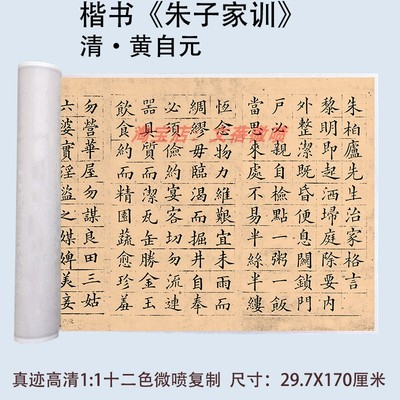 楷书《朱子家训》
清·黄自元
朱柏廬先生治家格言
黎明即起洒埽庭除要内
外整潔既昏便息關鎖門
户必親自檢點一粥一飯
當思來處不易半絲半縷
恆念物力維艱宜未雨而
綢繆毋臨渴而掘井自奉
必須儉約宴客切勿流連
器具質而潔瓦缶勝金玉
飲食約而精園蔬愈珍羞
勿營華屋勿謀良田三姑
六婆實淫盜之媒婢美妾
真迹高清1:1十二色微喷复制 尺寸：29.7X170厘米